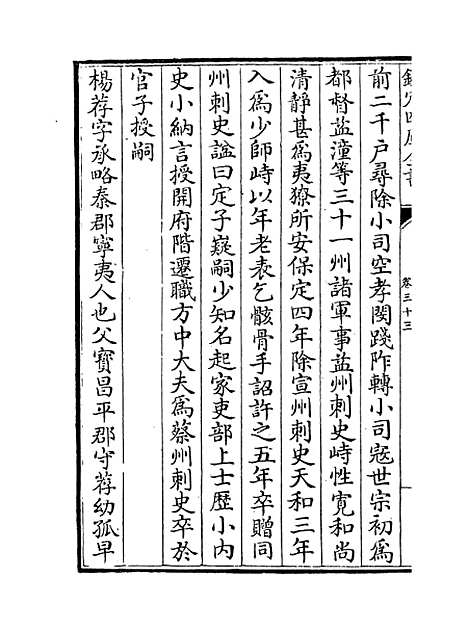 欽定四庫全書
卷三十三
前二千户尋除小司空孝閔踐阼轉小司寇世宗初為
都督益潼等三十一州諸軍事益州刺史峙性寛和尚
清靜甚為夷獠所安保定四年除宣州刺史天和三年
入為少師峙以年老表乞骸骨手詔許之五年卒贈同
州刺史諡曰定子嶷嗣少知名起家吏部上士歴小内
史小納言授開府階遷職方中大夫為蔡州刺史卒於
官子授嗣
楊荐字承略秦郡寧夷人也父寳昌平郡守荐幼孤早